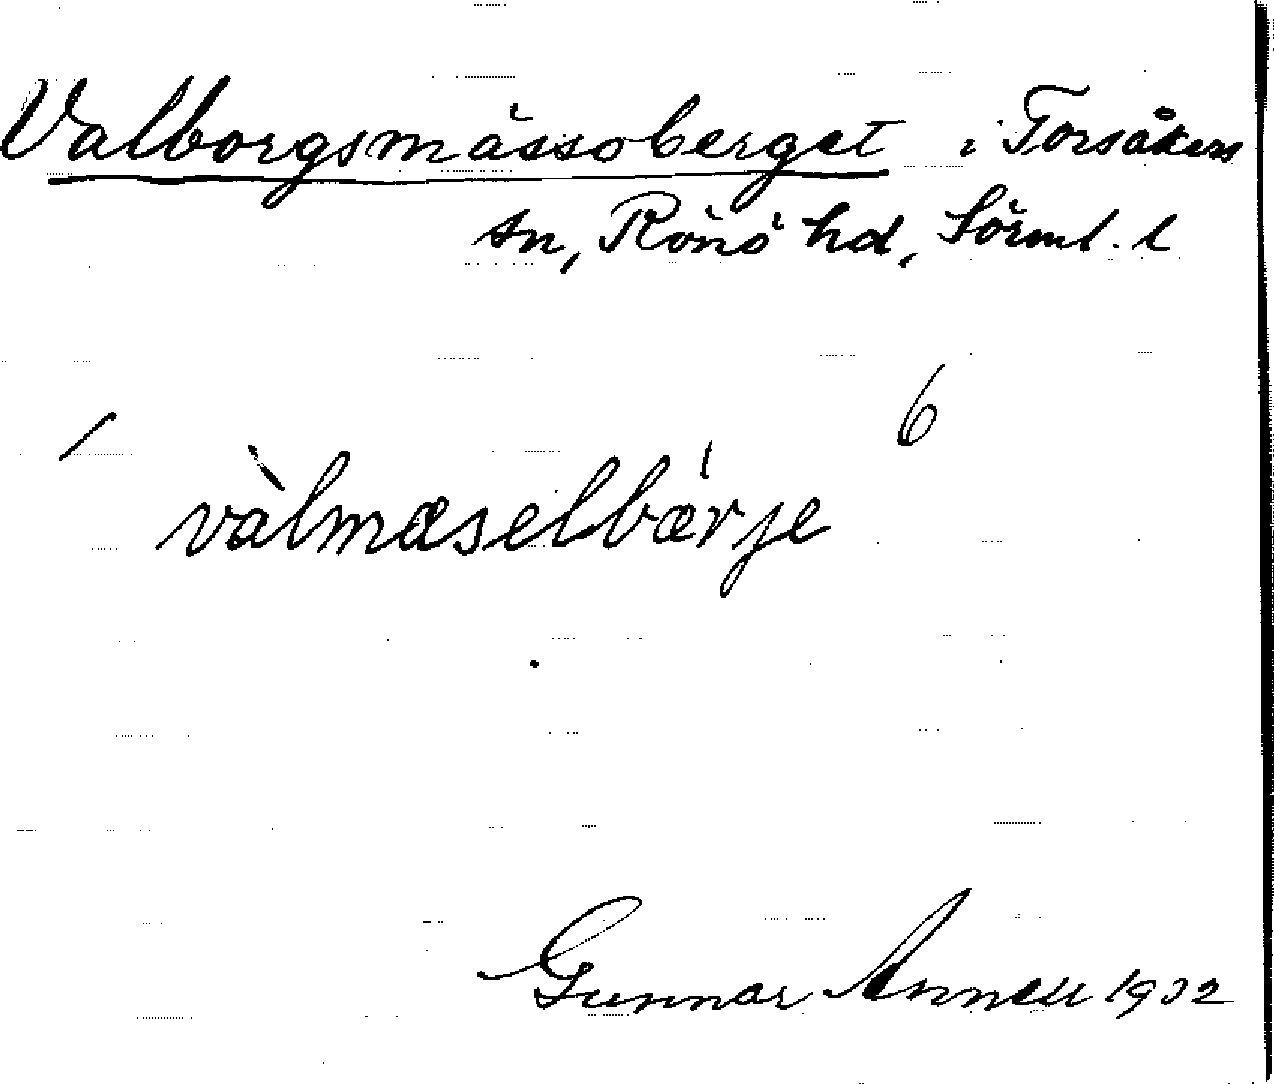 Valborgsmässoberget i Torsåkers
sn, Rönö hd, Sörml. l
6
vàlmæselbǽrje
Gunnar Annell 1932